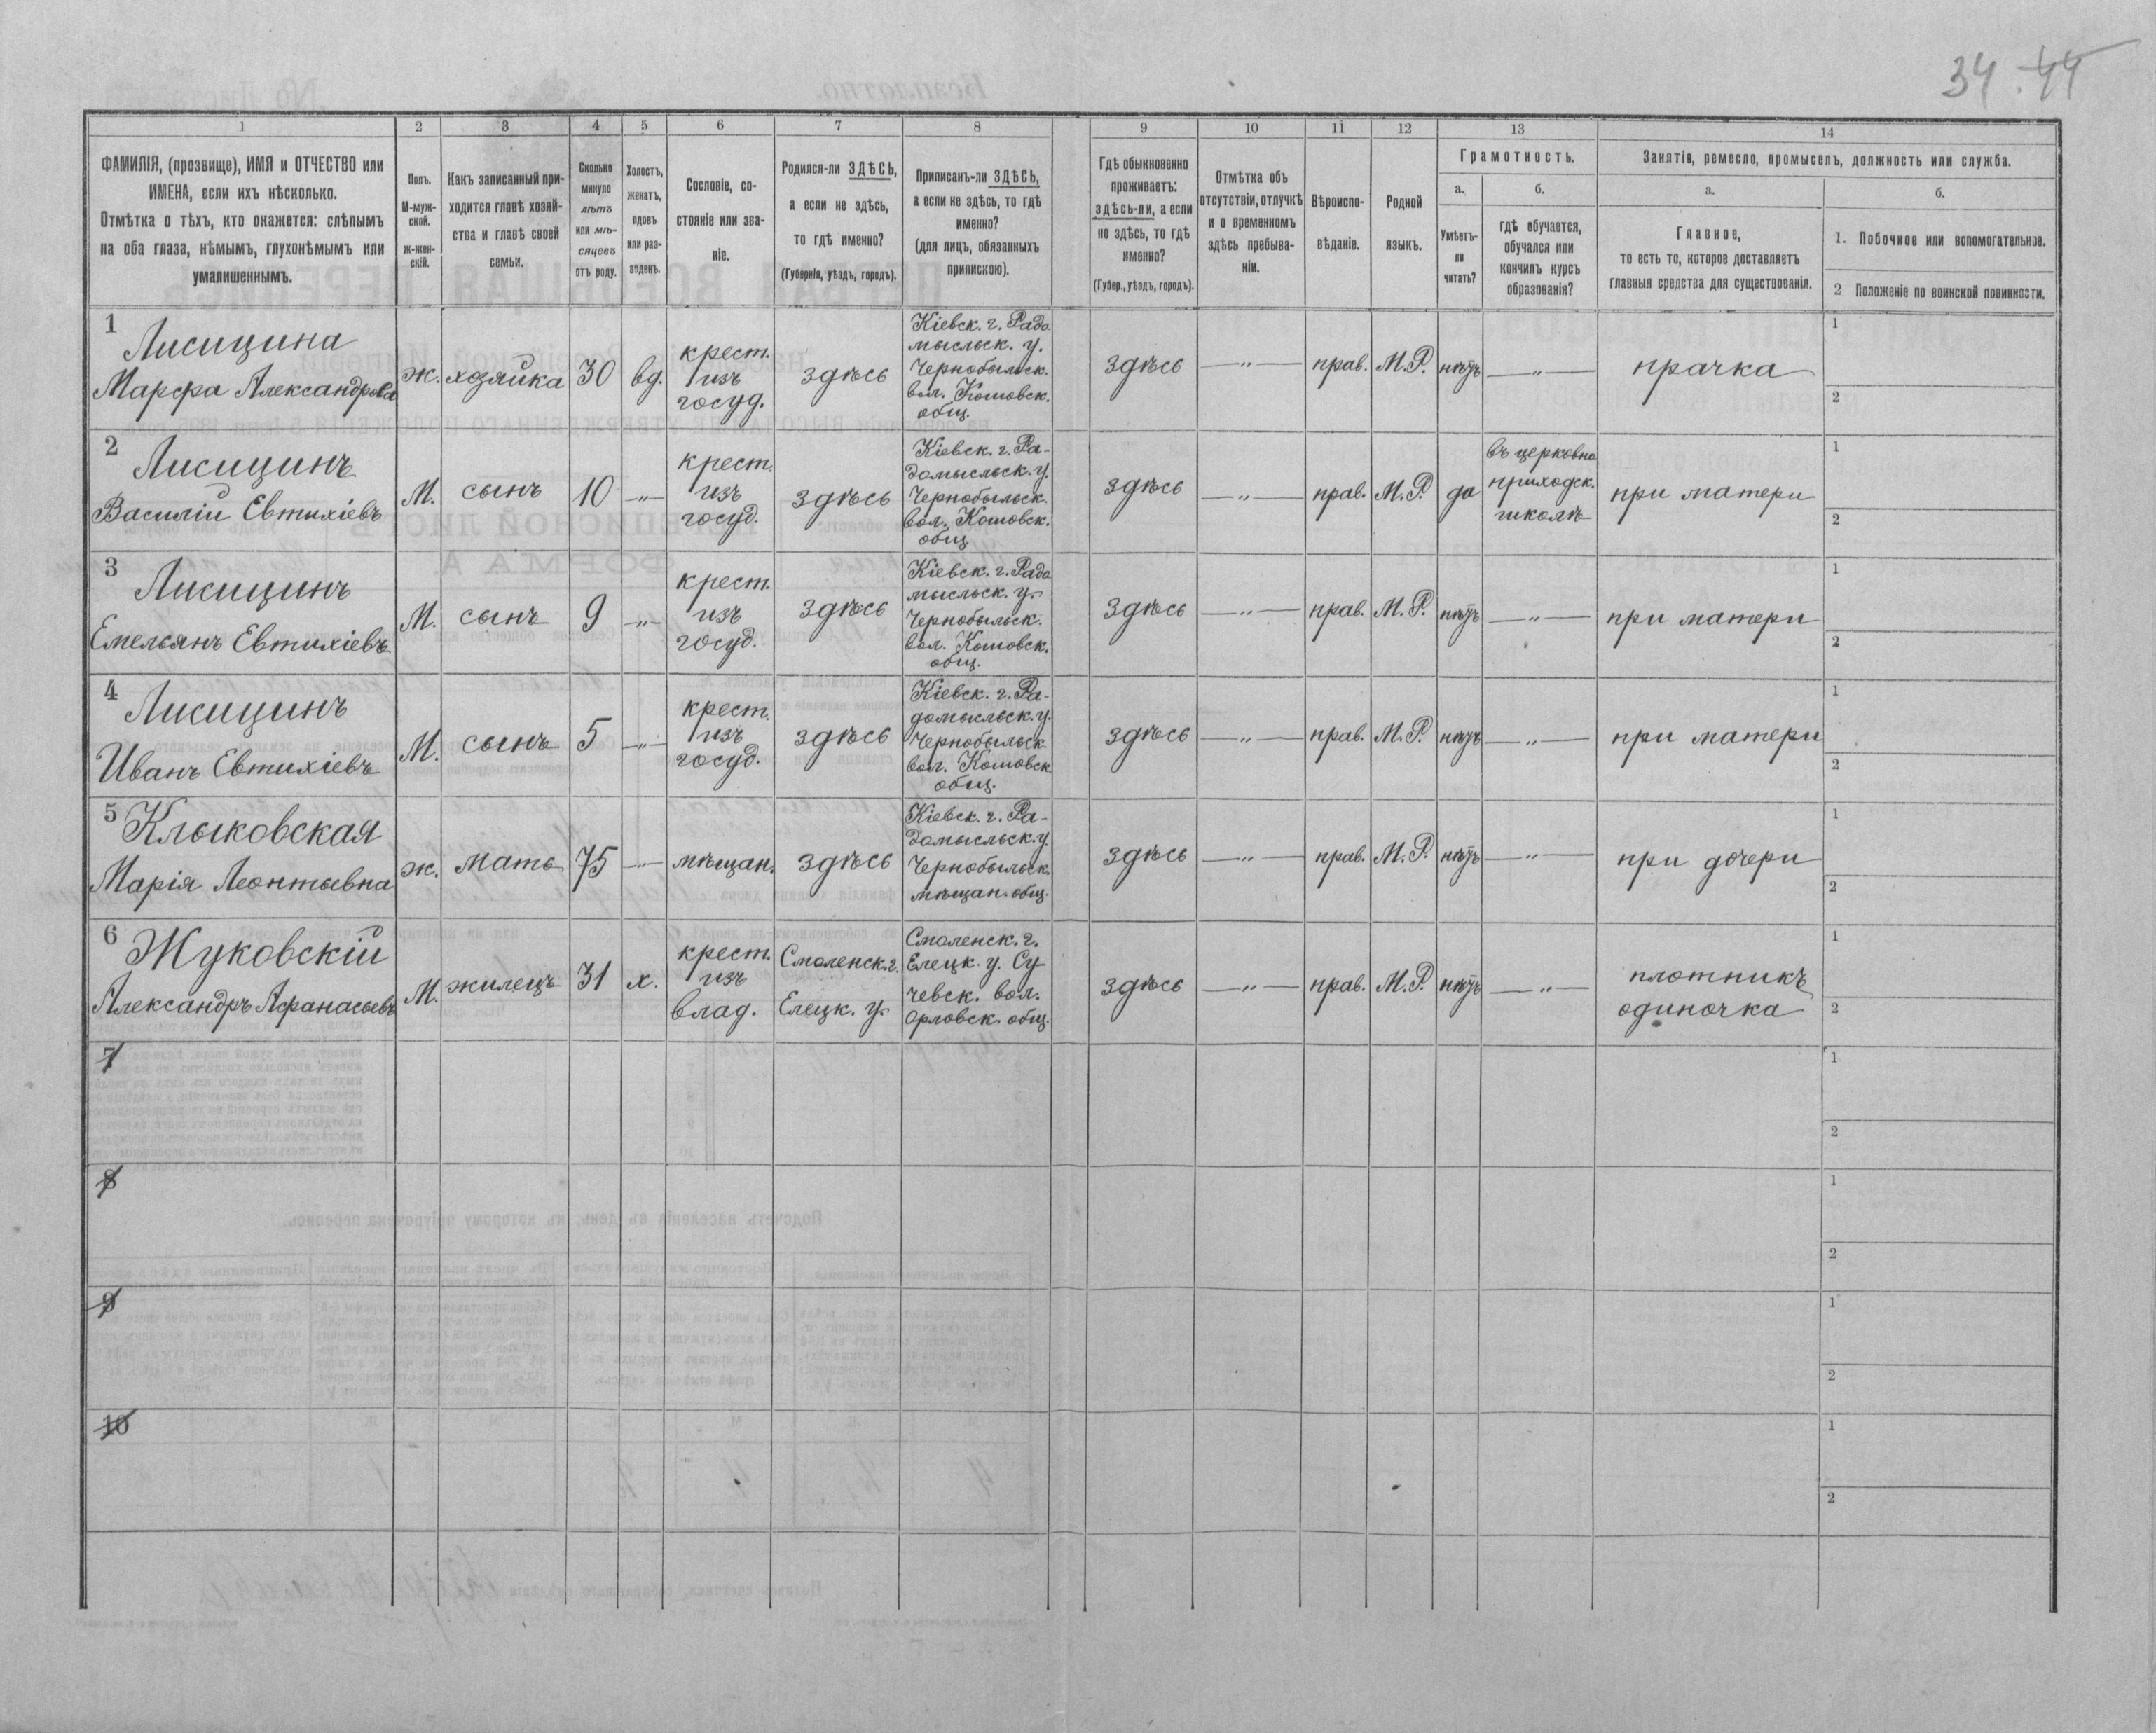 34. 44
1 2 3 4 5 6 7 8 9 10 11 12 13 14
ФАМИЛІЯ, (прозвище), ИМЯ и ОТЧЕСТВО или
ИМЕНА, если ихъ нѣсколько.
Отмѣтка о тѣхъ, кто окажется: слѣпымъ
на оба глаза, нѣмымъ, глухонѣмымъ или
умалишеннымъ.
Полъ.
М-муж-
ской.
ж-жен-
скій.
Какъ записанный при-
ходится главѣ хозяй-
ства и главѣ своей
семьи.
Сколько
минуло
лѣтъ
или мѣ-
сяцевъ
отъ роду.
Холостъ,
женатъ,
вдовъ
или раз-
веденъ.
Сословіе, со-
стояніе или зва-
ніе.
Родился-ли ЗДѢСЬ,
а если не здѣсь,
то гдѣ именно?
(Губернія, уѣздъ, городъ).
Приписанъ-ли ЗДѢСЬ,
а если не здѣсь, то гдѣ
именно?
(для лицъ, обязанныхъ
припискою).
Гдѣ обыкновенно
проживаетъ:
здѣсь-ли, а если
не здѣсь, то гдѣ
именно?
(Губер., уѣздъ, городъ).
Отмѣтка объ
отсутствіи, отлучкѣ
и о временномъ
здѣсь пребыва-
ніи.
Вѣроиспо-
вѣданіе.
Родной
языкъ.
Грамотность.
а.
Умѣетъ-
ли
читать?
б.
гдѣ обучается,
обучался или
кончилъ курсъ
образованія?
Занятіе, ремесло, промыселъ, должность или служба.
а.
Главное,
то есть то, которое доставляетъ
главныя средства для существованія.
б.
1. Побочное или вспомогательное.
2 Положеніе по воинской повинности.
1
Лисицина
Марфа Александрова
ж.
хозяйка
30
вд.
крест.
изъ
госуд.
здѣсь
Кіевск. г. Радо
мысльск. у.
Чернобыльск.
вол. Кошовск.
общ.
здѣсь
— „ —
прав.
М.Р.
нѣтъ
— „ —
прачка
1
2
2
Лисицинъ
Василій Евтихіевъ
М.
сынъ
10
— „ —
крест.
изъ
госуд.
здѣсь
Кіевск. г. Ра-
домысльск. у.
Чернобыльск.
вол. Кошовск.
общ.
здѣсь
— „ —
прав.
М.Р.
да
въ церковно
приходск.
школѣ
при матери
1
2
3
Лисицинъ
Емельянъ Евтихіевъ
М.
сынъ
9
— „ —
крест.
изъ
госуд.
здѣсь
Кіевск. г. Радо
мысльск. у.
Чернобыльск.
вол. Кошовск.
общ.
здѣсь
— „ —
прав.
М.Р.
нѣтъ
— „ —
при матери
1
2
4
Лисицинъ
Иванъ Евтихіевъ
М.
сынъ
5
— „ —
крест.
изъ
госуд.
здѣсь
Кіевск. г. Ра-
домысльск. у.
Чернобыльск
вол. Кошовск
общ.
здѣсь
— „ —
прав.
М.Р.
нѣтъ
— „ —
при матери
1
2
5
Клыковская
Марія Леонтьевна
ж.
мать
75
— „ —
мѣщан.
здѣсь
Кіевск. г. Ра-
домысльск. у.
Чернобыльск.
мѣщан. общ.
здѣсь
— „ —
прав.
М.Р.
нѣтъ
— „ —
при дочери
1
2
6
Жуковскій
Александръ Афанасьевъ
М.
жилецъ
31
х.
крест.
изъ
влад.
Смоленск. г.
Елецк. у.
Смоленск. г.
Елецк. у. Су-
чевск. вол.
Орловск. общ.
здѣсь
— „ —
прав.
М.Р.
нѣтъ
— „ —
плотникъ
одиночка
1
2
7
1
2
8
1
2
9
1
2
10
1
2